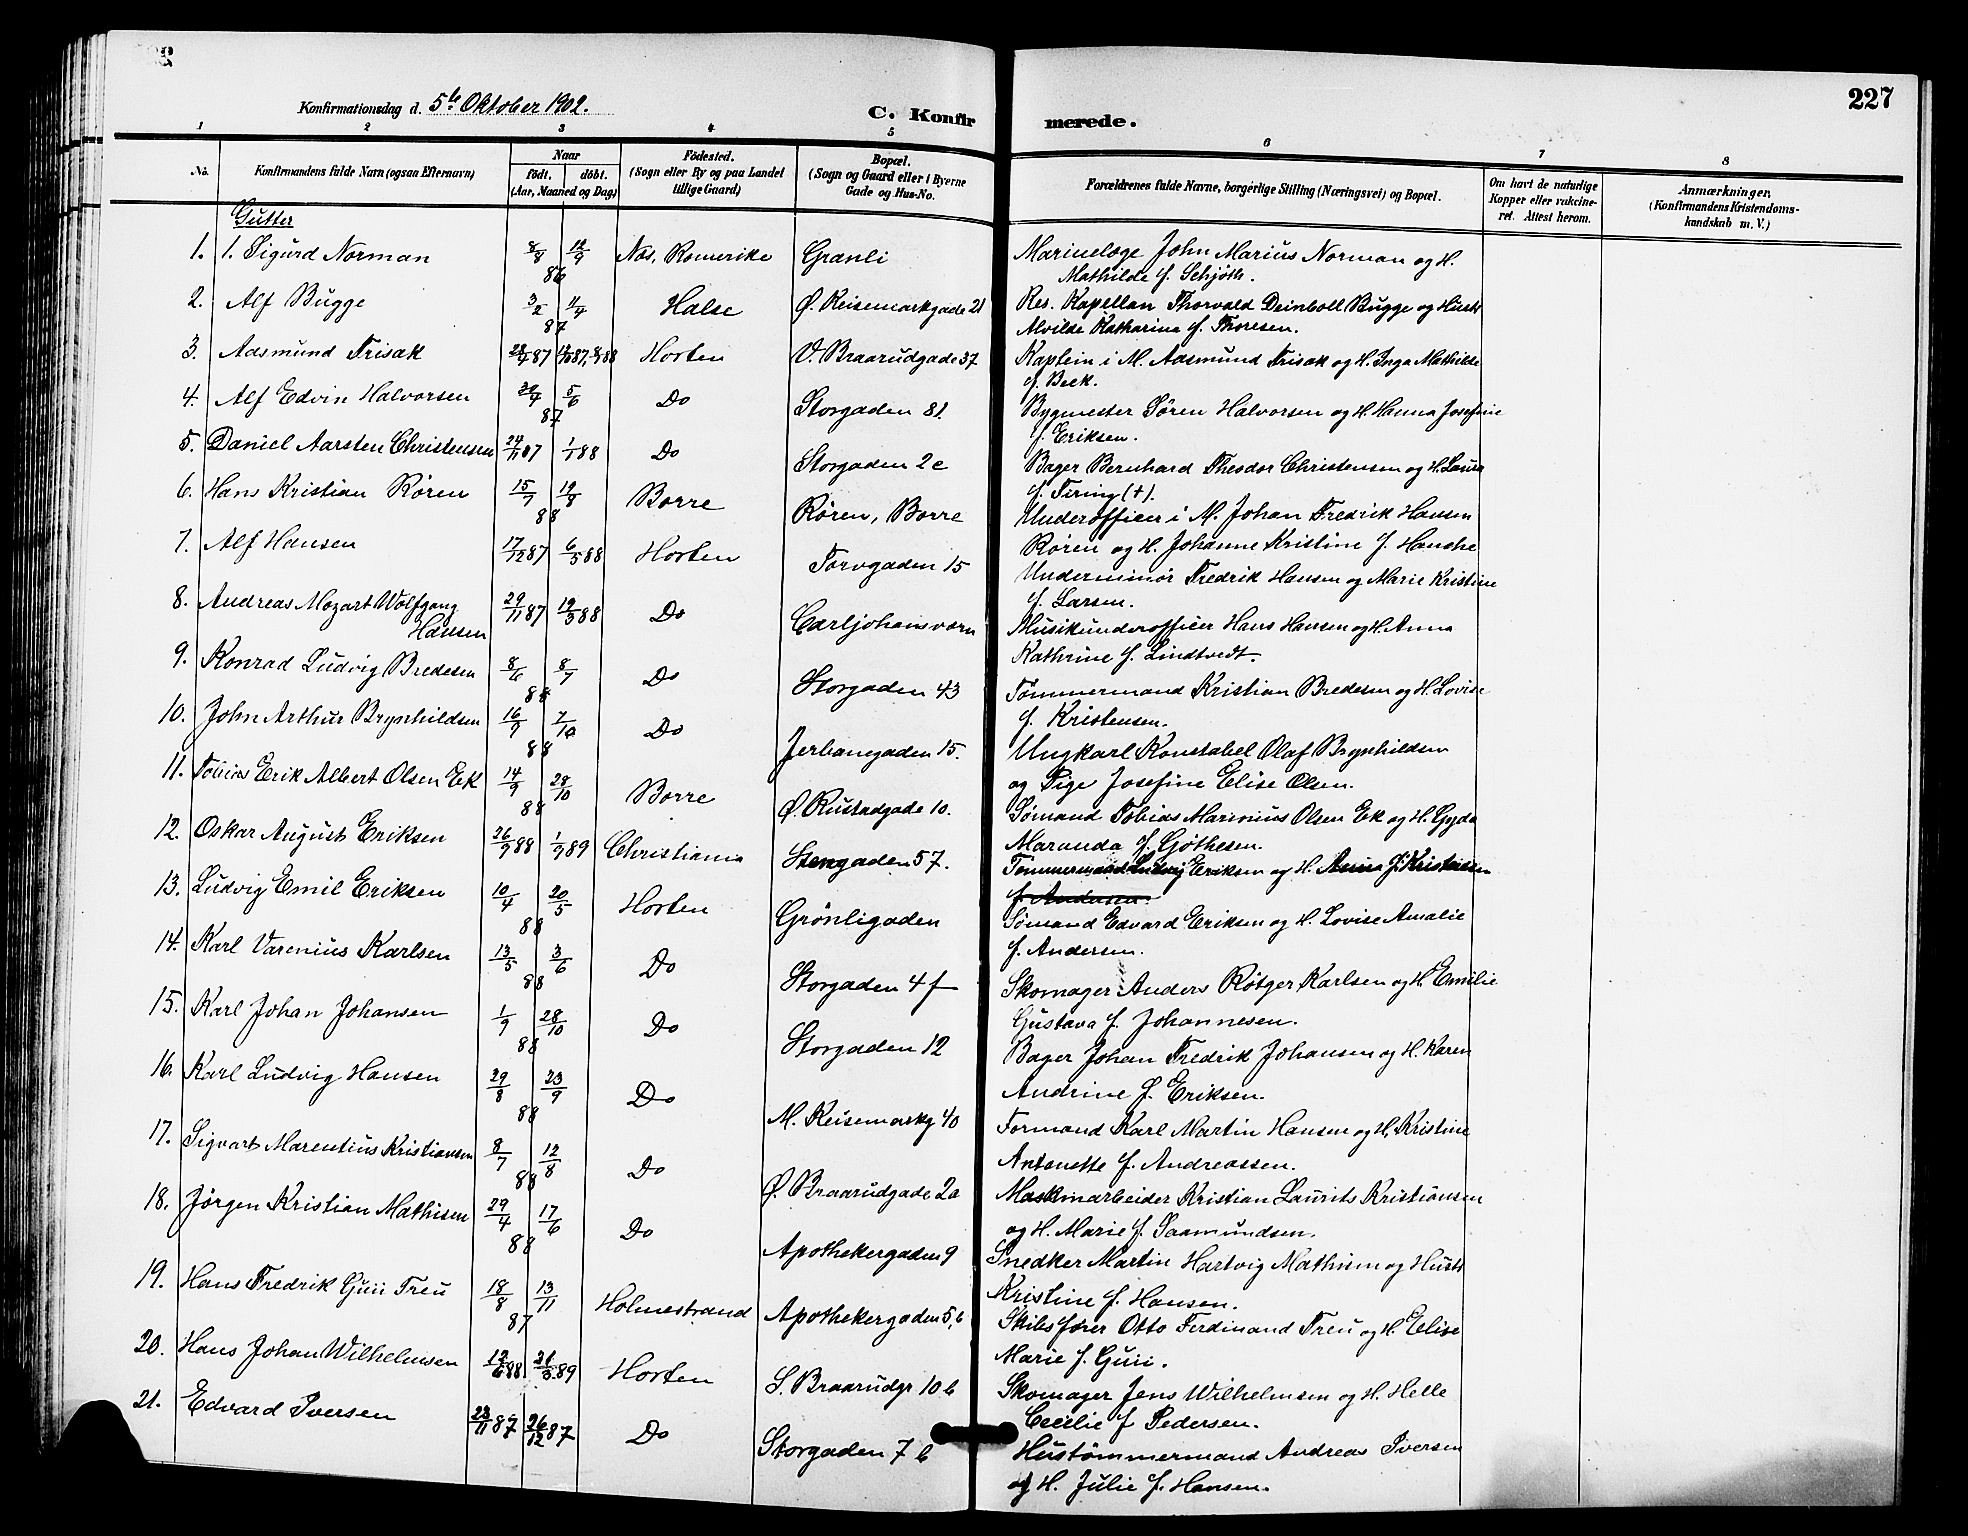 227
Konfirmationsdag d. 5te Oktober 1902.
C. Konfirmerede.
1 2 3 4 5 6 7 8
No.
Konfirmandens fulde Navn (ogsaa Efternavn)
Naar
födt. döbt.
(Aar, Maaned og Dag)
Födested.
(Sogn eller By og paa Landet
tillige Gaard)
Bopæl.
(Sogn og Gaard eller i Byerne
Gade og Hus-No.
Forældrenes fulde Navne, borgerlige Stilling (Næringsvei) og Bopæl.
Om havt de naturlige
Kopper eller vakcine-
ret. Attest herom.
Anmærkninger,
(Konfirmandens Kristendoms-
kundskab m. V.)
Gutter
1. 1. Sigurd Norman 8/8 12/9 86 Nes, Romerike Granli Marinelæge John Marius Norman og H.
Mathilde f. Schjøth.
2. Alf Bugge 3/2 11/4 87 Halse Ø. Keisemarkgade 21 Res. Kapellan Thorvald Deinboll Bugge og Hustr
Alvilde Katharina f. Thoresen.
3. Adsmund Frisak Horten V. Braarudgade 37 Kaptein i M. Aasmund Frisak og H. Inga Mathilde
f. Beck.
4. Alf Edvin Halvorsen 5/6 87 Do Storgaden 81. Bygmester Sören Halvorsen og H. Hanna Josefine
f. Eriksen.
5. Daniel Aarsten Christensen 24/11 87 1/1 88 Do Storgaden 2c Bager Bernhard Theodor Christensen og H. Laura
f. Firing (+).
6. Hans Kristian Røren 15/7 19/8 88 Borre Røren, Borre Underofficer i M. Johan Fredrik Hansen
Røren og H. Johanne Kristine f. Hanche
7. Alf Hansen 17/12 87 6/5 88 Horten Torvgaden 15 Underminör Fredrik Hansen og Marie Kristine
f. Larsen.
8. Andreas Mozart Wolfgang
Hansen 29/11 87 19/3 88 Do Carljohansværn Musikunderofficer Hans Hansen og H. Anna
Kathrine f. Lindtvedt.
9. Konrad Ludvig Bredesen 8/6 8/7 88 Do Storgaden 43 Tømmermand Kristian Bredesen og H. Lovise
f. Kristensen.
10. John Arthur Brynhildsen 16/9 7/10 88 Do Jerbanegaden 15. Ungkarl Konstabel Olaf Brynhildsen
og Pige Josefine Elise Olsen.
11. Tobias Erik Albert Olsen Ek 14/9 28/10 88 Borre Ø. Rustadgade 10. Sømand Tobias Marinius Olsen Ek og H. Gyda
Maranda f. Gjøthesen.
12. Oskar August Eriksen 26/9 88 1/9 89 Christiania Stengaden 57. Tømmermand Ludvig Eriksen og H. Anna f. Kristiansen
f. Andersen.
13. Ludvig Emil Eriksen 10/4 20/5 88 Horten Grønligaden Sømand Edvard Eriksen og H. Lovise Amalie
f. Andersen.
14. Karl Varenius Karlsen 13/5 3/6 88 Do Storgaden 4 f Skomager Anders Røtger Karlsen og H. Emilie
Gustava f. Johannesen.
15. Karl Johan Johansen 1/9 28/10 88 Do Storgaden 12 Bager Johan Fredrik Johansen og H. Karen
Andrine f. Eriksen.
16. Karl Ludvig Hansen 29/8 23/9 88 Do M. Keisemarkg 40 Formand Karl Martin Hansen og H. Kristine
Antonette f. Andreassen.
17. Sigvart Marentius Kristiansen 8/7 12/8 88 Do Ø. Braarudgade 2a Maskinarbeider Kristian Laurits Kristiansen
og H. Marie f. Saamundsen.
18. Jørgen Kristian Mathisen 29/4 17/6 88 Do Apothekergaden 9 Snedker Martin Hartvig Mathisen og Hustr
Kristine f. Hansen.
19. Hans Fredrik Guii Treu 18/8 13/11 87 Holmestrand Apothekergaden 5,b Skibsfører Otto Ferdinand Treu og H. Elise
Marie f. Guii.
20. Hans Johan Wilhelmsen 12/6 88 21/3 89 Horten S. Braarudgr 10 b Skomager Jens Wilhelmsen og H. Helle
Cecilie f Pedersen.
21. Edvard Iversen 23/11 87 26/12 87 Do Storgaden 7 b Hustømmermand Andreas Iversen
og H. Julie f. Hansen.